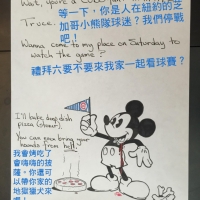 Wait, you're a CUBS fan
等一下，你是人在紐約的芝
Truce.
加哥小熊隊球迷？我們停戰
吧！
Wanna come to my place on Saturday to
watch the game?
禮拜六要不要來我家一起看球賽？
I'll bake deep dish
pizza
You can even bring your
hounds from hell.
我會烤吃了
會嗨嗨的披
薩，你還可
以帶你家的
地獄獵犬來